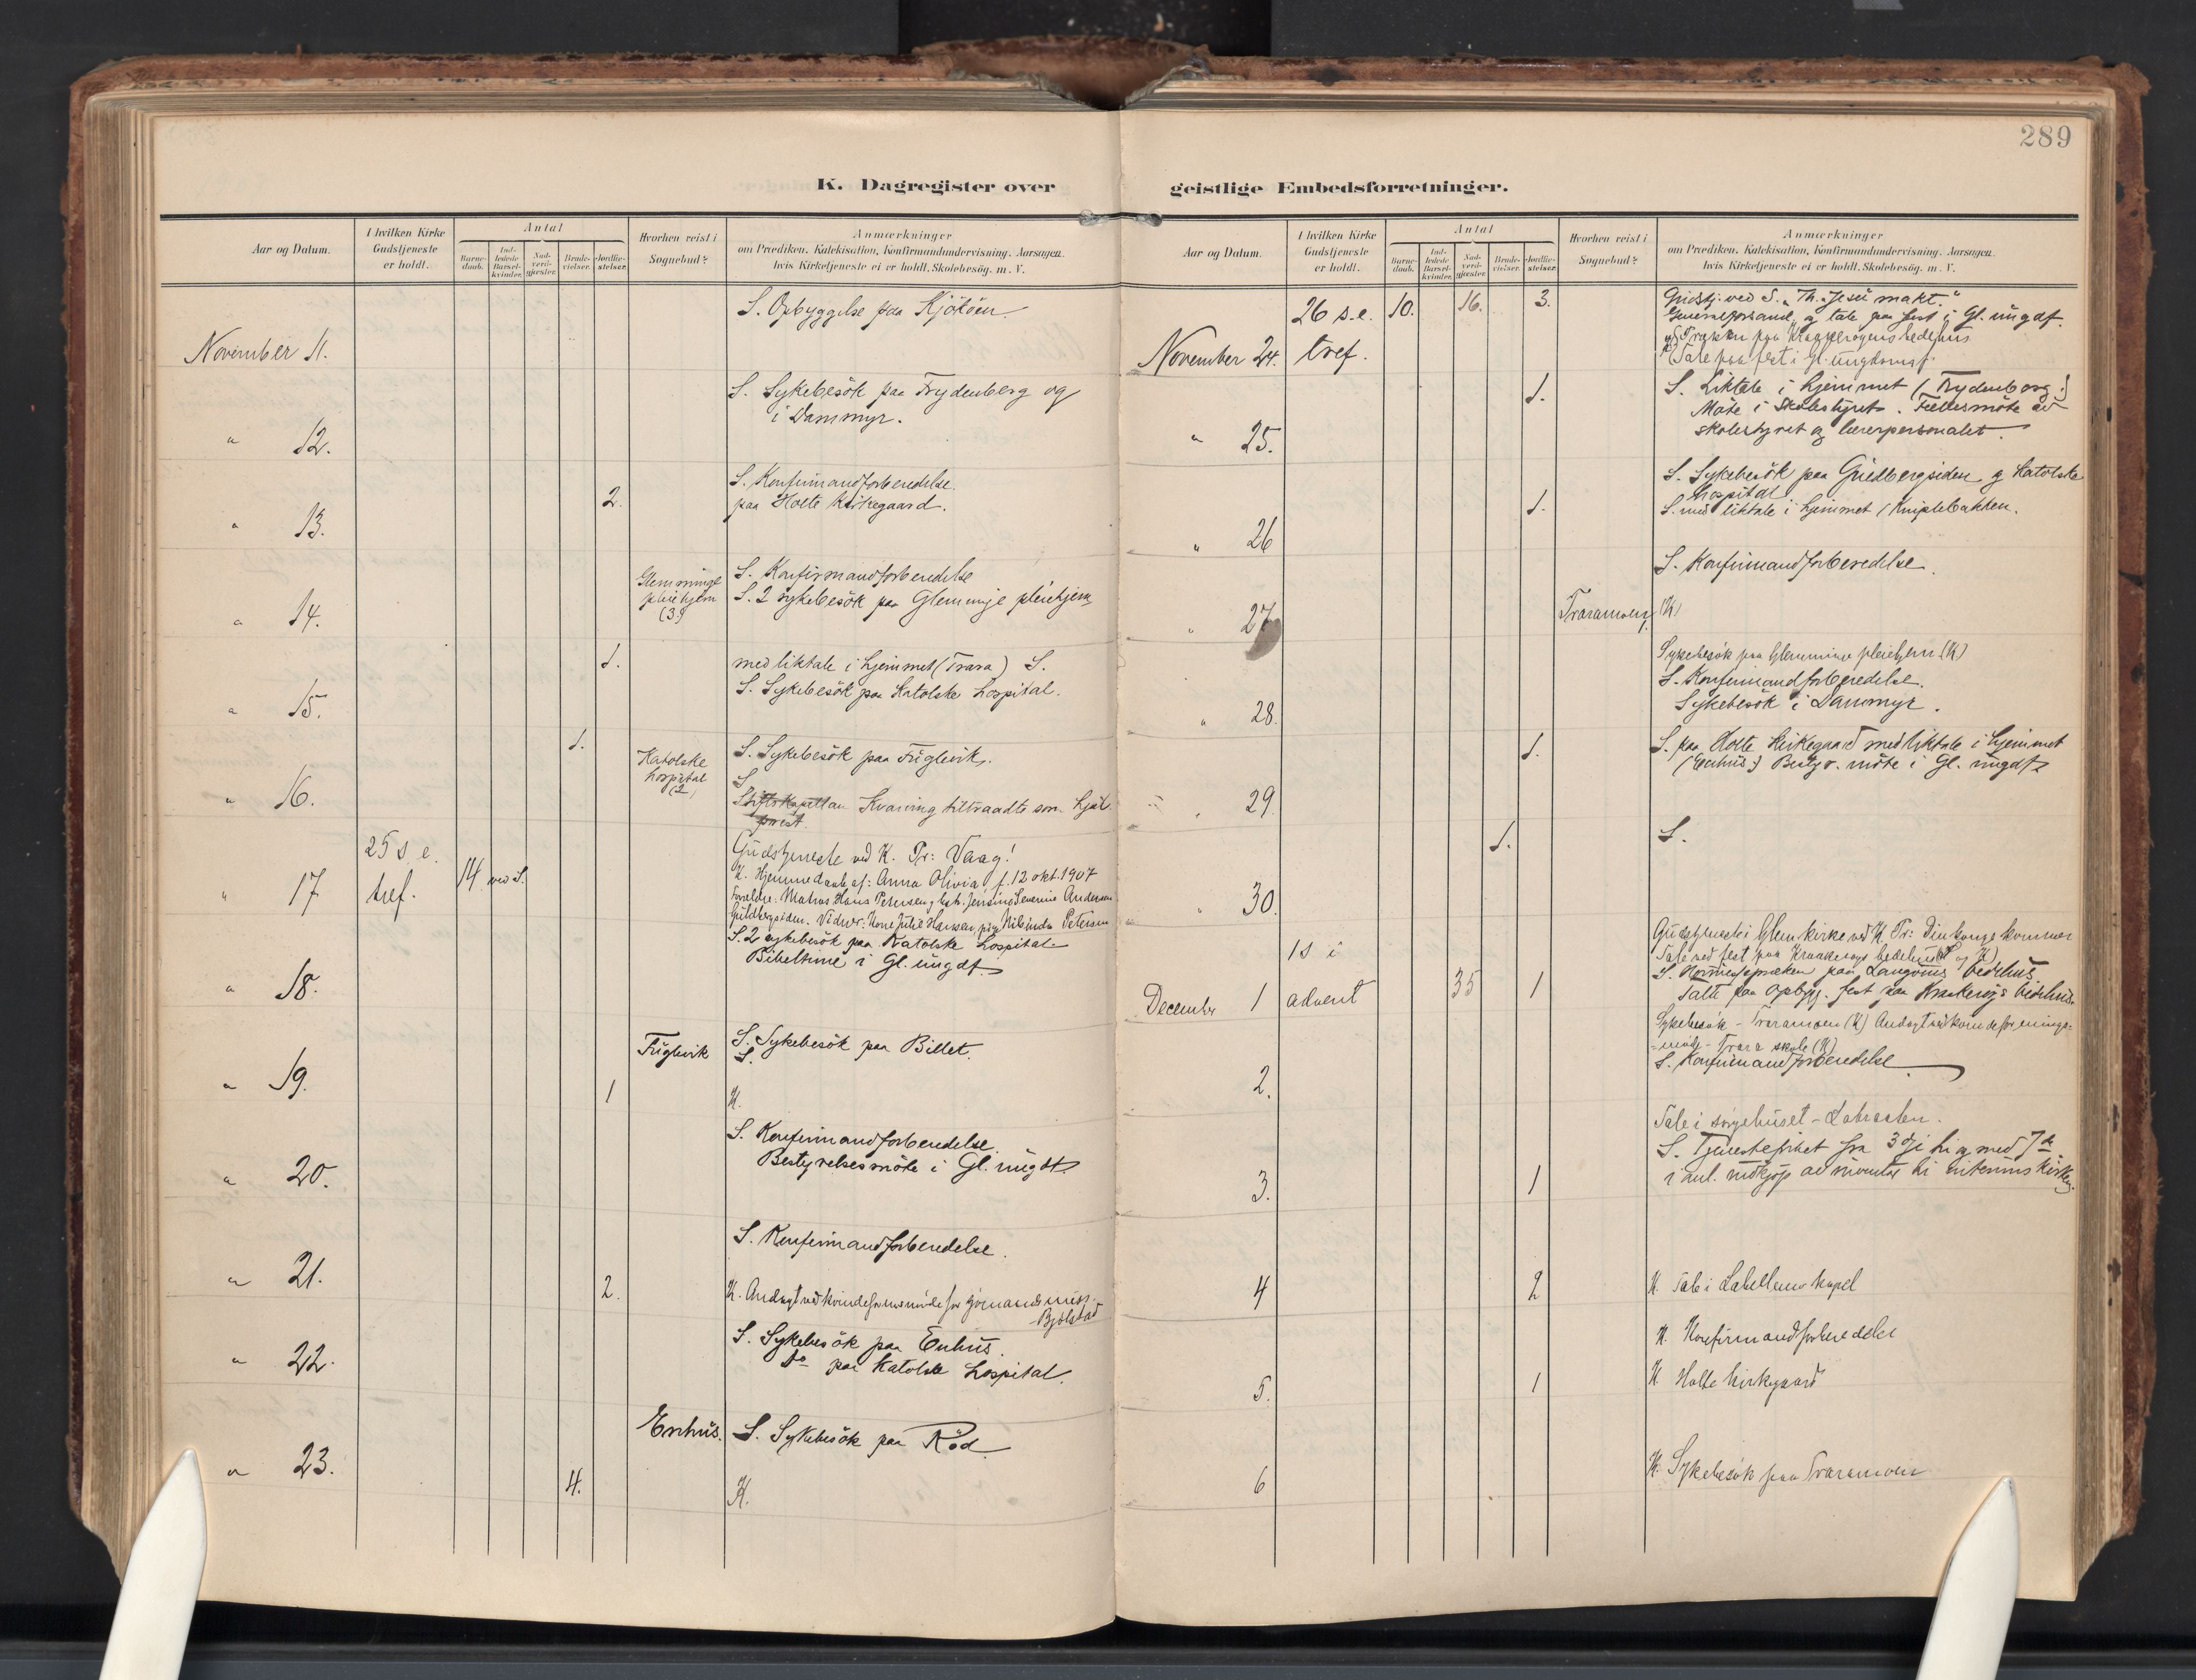 289
K. Dagregister over
geistlige Embedsforretninger.
Aar og Datum.
I hvilken Kirke
Gudstjeneste
er holdt.
Antal
Barne-
daab.
Ind-
ledede
Barsel-
kvinder.
Nad-
verd-
gjæster.
Brude-
vielser.
Jordfæ-
stelser.
Hvorhen reist i
Sognebud?
Anmærkninger
om Prædiken, Katekisation, Konfirmandundervisning, Aarsagen,
hvis Kirketjeneste ei er holdt, Skolebesög. m. V.
S. Opbyggelse paa Kjököen
November 11.
S. Sykebesök paa Frydenberg og
i Dammyr.
" 12.
2. S. Konfirmandforberedelse.
paa Holte Kirkegaard.
" 13.
Glemminge
pleiehjem
(3)
S. Konfirmandforberedelse
S. 2 sykebesök paa Glemminge pleiehjem
" 14.
1. med liktale i hjemmet (Trara) S.
S. Sykebesök paa Katolske hospital.
" 15.
1. Katolske
hospital
(2)
S. Sykebesök paa Fuglevik.
S.
Stiftskapellan Kvarving tiltraadte som hjæl-
prest.
" 16.
25 s. e.
tref.
" 17
14 ved S.
Gudstjeneste ved K. Pr: Vaag!
K. Hjemmedaab af: Anna Olivia f. 12 okt. 1907
Forældre: Matros Hans Petersen g Jensine Severine Andersen
Guldbergsiden. Vidner: Kone Julie Hansen, pige Petersen
S. 2 sykebesök paa Katolske hospital.
Bibeltime i Gl. ungdf.
" 18.
Fuglevik
S. Sykebesök paa Billet.
S.
" 19.
1 K.
S. Konfirmandforberedelse.
Bestyrelsesmöte i Gl. ungdf.
" 20.
S. Konfirmandforberedelse.
" 21.
2. K. Andagt ved
Bjölstad
S. Sykebesök paa Enhus.
do paa Katolske hospital.
" 22.
Enhus. S. Sykebesök paa Röd
" 23.
4. K.
Aar og Datum.
I hvilken Kirke
Gudstjeneste
er holdt.
Antal
Barne-
daab.
Ind-
ledede
Barsel-
kvinder.
Nad-
verd-
gjæster.
Brude-
vielser.
Jordfæ-
stelser.
Hvorhen reist i
Sognebud?
Anmærkninger
om Prædiken, Katekisation, Konfirmandundervisning, Aarsagen,
hvis Kirketjeneste ei er holdt, Skolebesög. m. V.
26 s.e. 10. 16. 3.
Gudstj. ved S. „Th. Jesu makt."
Generalforsaml. og tale paa fest i Gl. ungdf.
paa Kraakerögens bedehus
Tale paa fest i Gl. ungdomsf.
November 24. tref.
1. S. Liktale i hjemmet (Frydenborg.)
Möte i Skolestyret. Fællesmöte av
skolestyret og lærerpersonalet.
" 25.
S. Sykebesök paa Guldbergsiden g Katolske
hospital
1. S. med liktale i hjemmet (Kniplebakken.
" 26
S. Konfirmandforberedelse.
Traramoen. (K)
" 27
Sykebesök paa Glemminge pleiehjem (K)
S. Konfirmandforberedelse.
Sykebesök i Dammyr.
" 28.
1. S. paa Holte Kirkegaard med liktale i hjemmet
(Enhus) Bestyr. möte i Gl. ungdf.
" 29
1. S.
" 30.
Gudstjeneste i Glem. kirke ved K. Pr: Din konge kommer
Tale ved fest paa Kraakeröys bedehus (S. og K)
S. paa Langöens bedehus
Talte paa opbygg. fest paa Kraakeröys bedehus.
1 s i
December 1 advent 35 1
Sykebesök - Traramoen (K) Andagt ved kvindeforenings-
=möde - Trara skole (K)
S. Konfirmandforberedelse
2.
Tale i sörgehuset -
S. Tjenestefrihet fra 3dje til og med 7de
i anl. indkjöp av inventar til interimskirken.
3. 1
4 2 K. Tale i Labellens kapel
K. Konfirmandforberedelse
5. 1 K. Holte kirkegaard
6 K. Sykebesök paa Traramoen